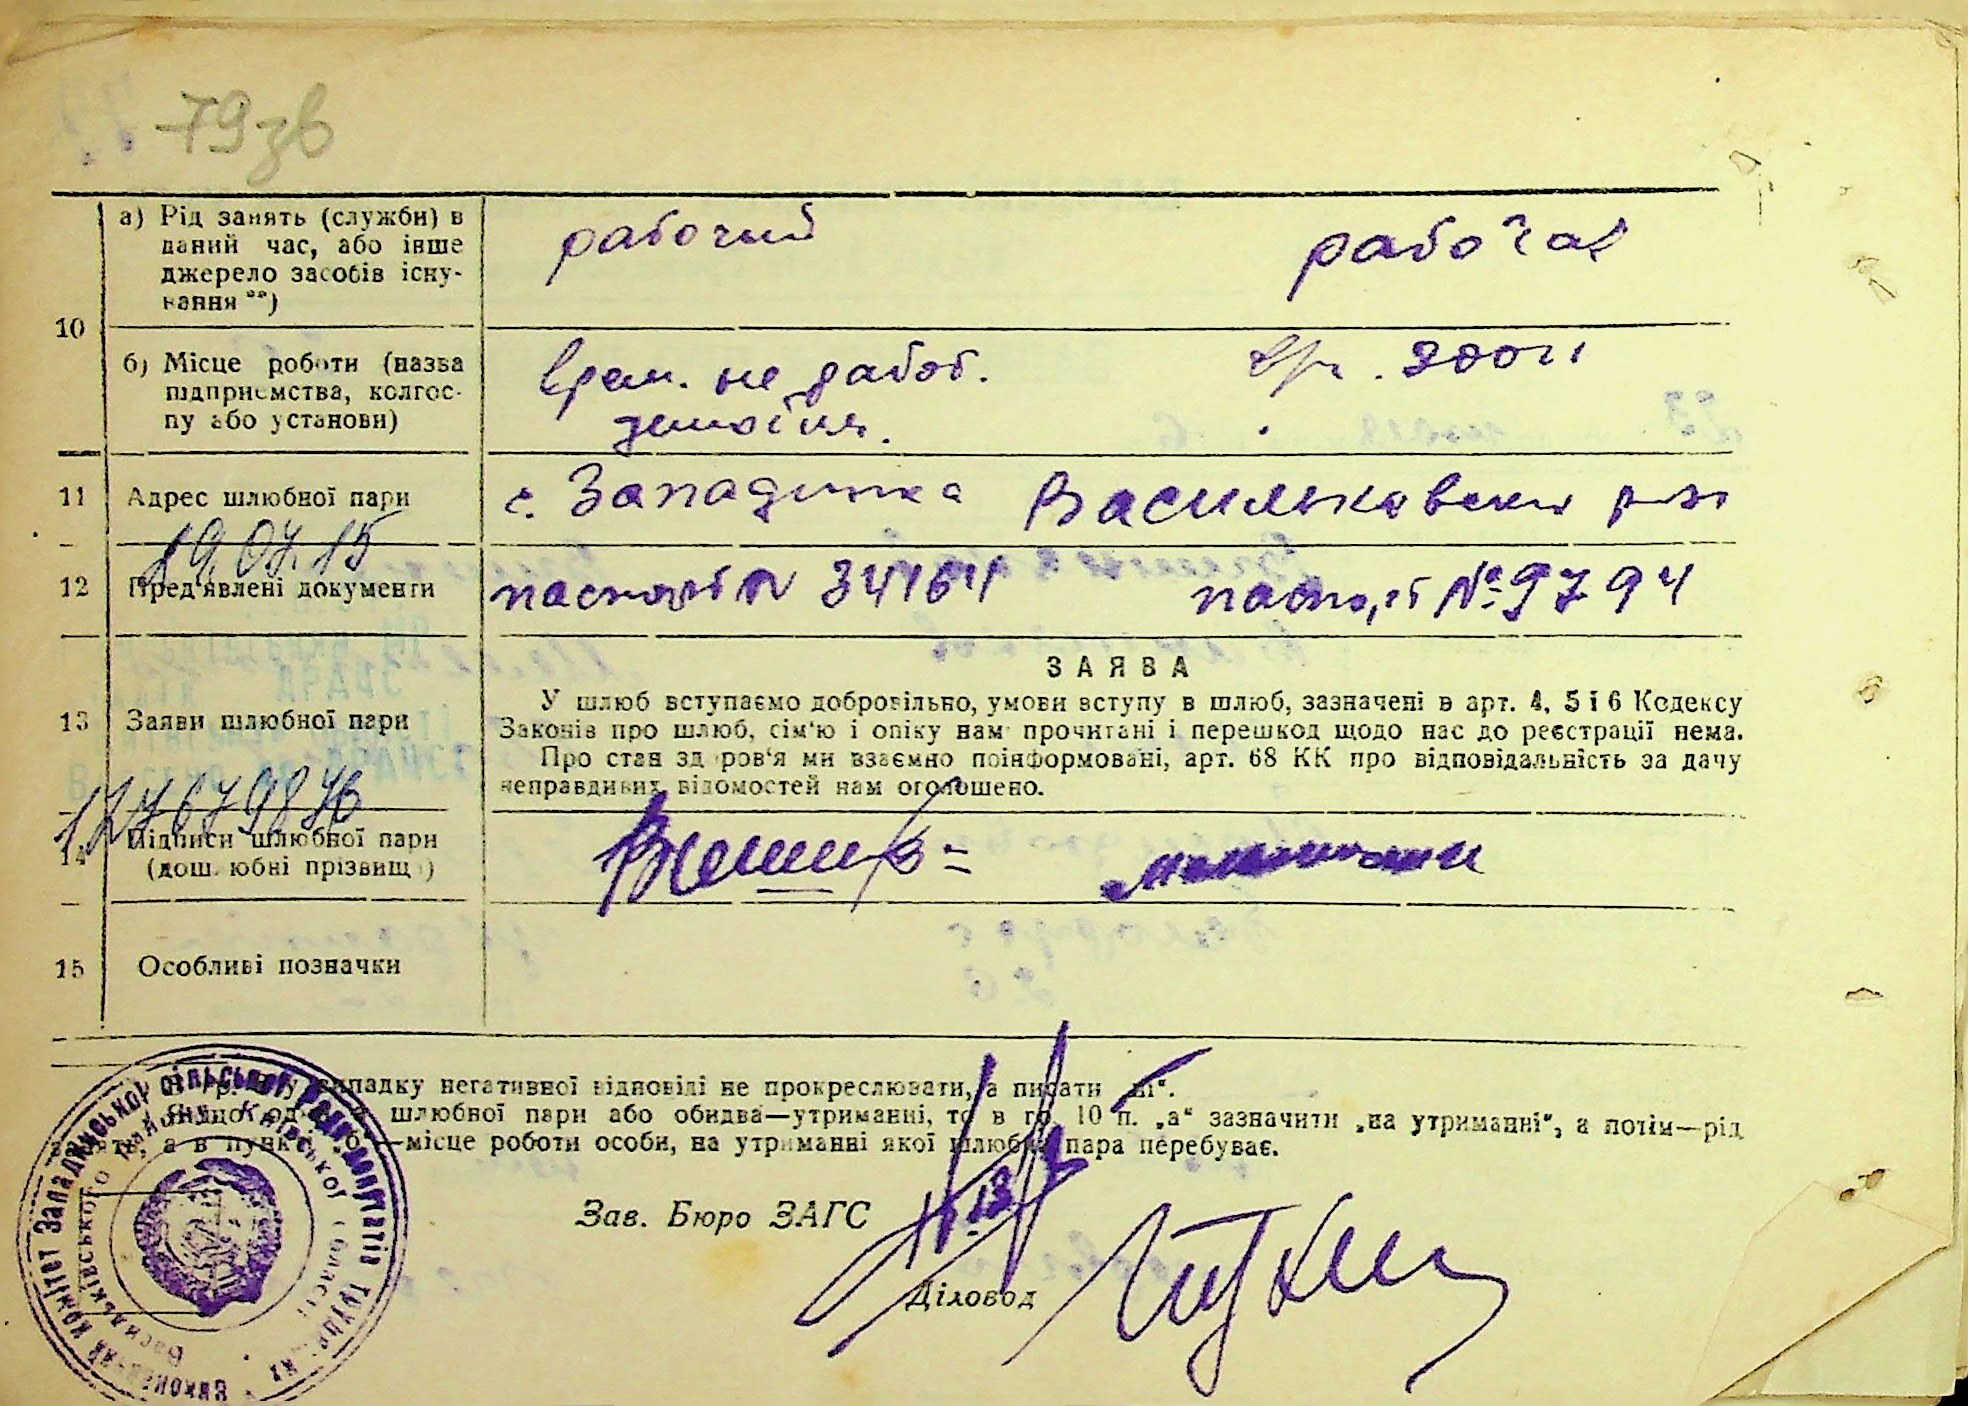 79зв
а) Рід занять (служби) в
даний час, або інше
джерело засобів існу-
вання **)
рабочий
рабочая
10
б) Місце роботи (назва
підприємства, колгос-
пу або установи)
врем. не работ.
11
Адрес шлюбної пари
с. Западинка Васильковский р-н
19.07.15
12
Пред'явлені документи
паспорт № 34164
паспорт № 9794
13
Заяви шлюбної пари
ЗАЯВА
У шлюб вступаємо добровільно, умови вступу в шлюб, зазначені в арт. 4, 5 і 6 Кодексу
Законів про шлюб, сім'ю і опіку нам прочитані і перешкод щодо нас до реєстрації нема.
Про стан здоров'я ми взаємно поінформовані, арт. 68 КК про відповідальність за дачу
неправдивих відомостей нам оголошено.
14
Підписи шлюбної пари
(дошлюбні прізвища)
15
Особливі позначки
випадку негативної відповіді не прокреслювати, а писати „ні“.
Якщо шлюбної пари або обидва—утриманні, то в гр. 10 п. „а“ зазначити „на утриманні“, а потім—рід
а в пункті „б“—місце роботи особи, на утриманні якої шлюбна пара перебуває.
Зав. Бюро ЗАГС
Діловод
Виконавчий комітет Западинської сільської Ради депутатів трудящих
Васильківського району Київської області